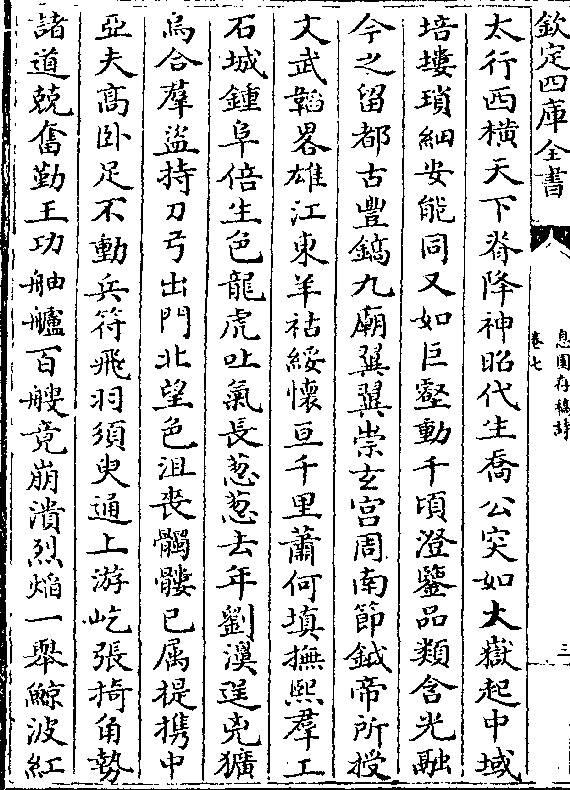 欽定四庫全書
息園存稿詩
卷七
三
太行西橫天下脊降神昭代生喬公突如大嶽起中域
培塿瑣細安能同又如巨壑動千頃澄鑒品類含光融
今之留都古豐鎬九廟翼翼崇玄宫周南節鉞帝所授
文武韜畧雄江東羊祜綏懷亘千里蕭何填撫熙羣工
石城鍾阜倍生色龍虎吐氣長葱葱去年劉濞逞兇獷
烏合羣盗持刀弓出門北望色沮喪髑髏已属提携中
亞夫髙卧足不動兵符飛羽須臾通上游屹張掎角勢
諸道兢奮勤王功舳艫百艘竟崩潰烈焰一舉鯨波紅